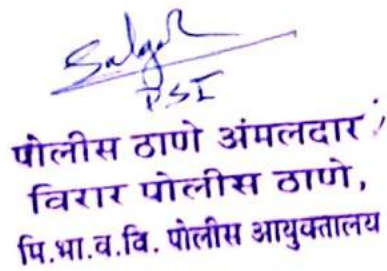 PSI
पोलीस ठाणे अंमलदार
विरार पोलीस ठाणे,
मि.भा.व.वि. पोलीस आयुक्तालय